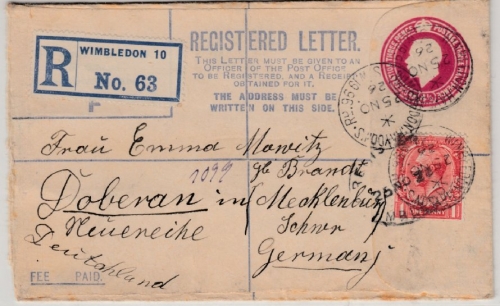 WIMBLEDON 10
R No. 63
REGISTERED LETTER.
THIS LETTER MUST BE GIVEN TO AN
OFFICER OF THE POST OFFICE
TO BE REGISTERED, AND A RECEIPT
OBTAINED FOR IT.
THE ADDRESS MUST BE
WRITTEN ON THIS SIDE.
F
Frau Emma Mowitz
1099
geb Brandt
Doberan in Mecklenburg
Neuereihe Schwer
Germany
Deutschland
FEE PAID.
ONE PENNY
25 NO
26